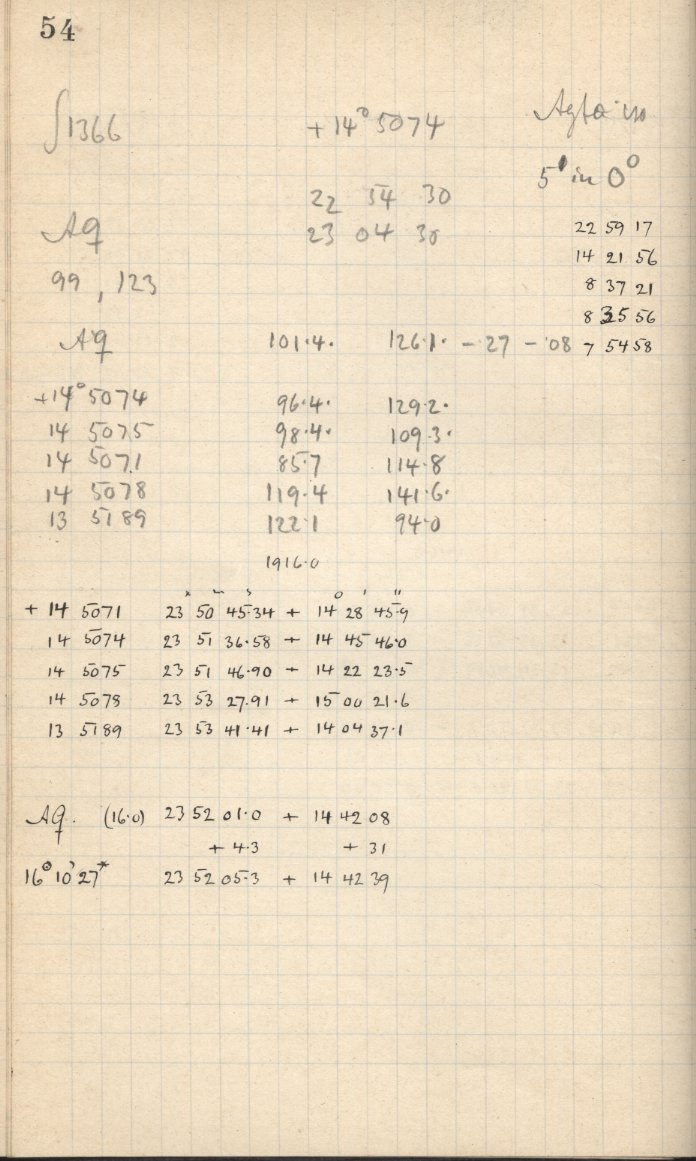 54
∫1366 +14° 5074
5' in 0°
22 54 30
23 04 30
22 59 17
14 21 56
8 37 21
8 35 56
7 54 58
Aq
99, 123
Aq 101.4. 126.1. - .27 - .08
+14° 5074 96.4. 129.2.
14 5075 98.4. 109.3.
14 5071 85.7 114.8
14 5078 119.4 141.6.
13 5189 122.1 94.0
1916.0
h m s ° ' "
+ 14 5071 23 50 45.34 + 14 28 45.9
14 5074 23 51 36.58 + 14 45 46.0
14 5075 23 51 46.90 + 14 22 23.5
14 5078 23 53 27.91 + 15 00 21.6
13 5189 23 53 41.41 + 14 04 37.1
Aq. (16.0) 23 52 01.0 + 14 42 08
+ 4.3 + 31
16° 10' 27* 23 52 05.3 + 14 42 39